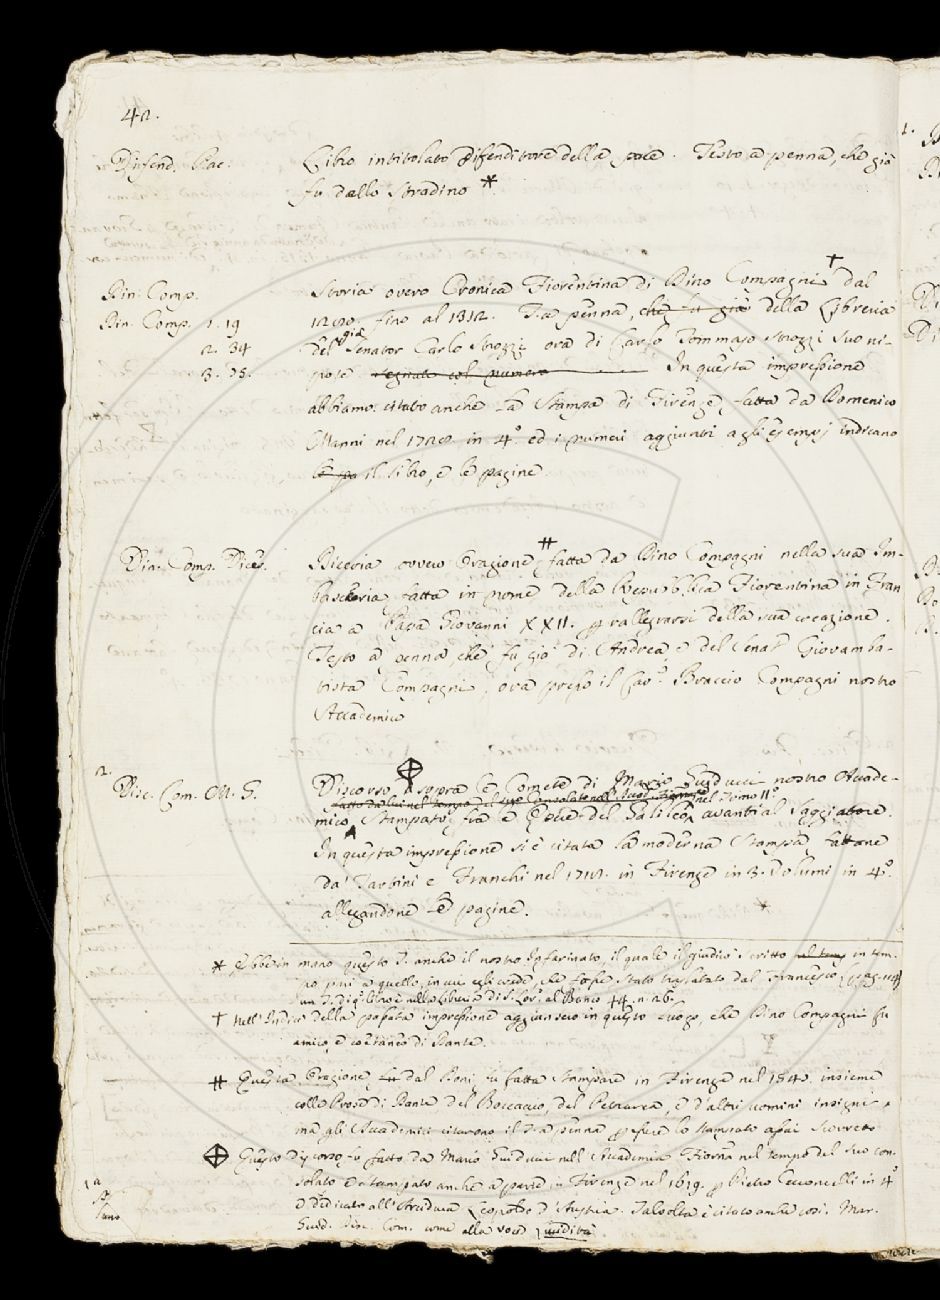 42.
Difend. Pac. Libro intitolato difenditore della pace. Testo a penna, che già
fu dello Stradino *
Din. Comp. Storia overo Cronica Fiorentina di Dino Compagni † dal
Din. Comp. 1. 19 fino al 1312. T. a penna, che fu già della Libreria
2. 34 del già Senator Carlo Strozzi ora di Carlo Tommaso Strozzi suo ni-
3. 75. pote segnato col numero In questa impressione
abbiamo citato anche la Stampa di Firenze fatta da Domenico
Manni nel 1728 in 4.º ed i numeri aggiunti agli esempj indicano
le pa il libro, e le pagine.
Din. Comp. Dicer. Diceria overo Orazione # fatta da Dino Compagni nella sua Im-
basceria fatta in nome della Repubblica Fiorentina in Fran
cia a Papa Giovanni XXII. p rallegrarsi della sua creazione.
Testo a penna che fu già di Andrea e del Senat. Giovamba-
tista Compagni, ora presso il Cav. Braccio Compagni nostro
Accademico
2.
Disc. Com. M. G. Discorso sopra le Comete di Mario Guiducci nostro Acade-
fatto da lui nel tempo il suo Consolato nell' Accad. Fiorent. nel Tomo IIº
mico Stampato fra le Opere del Galileo avanti al Saggiatore.
In questa impressione si è citata la moderna Stampa fattane
da' Tartini e Franchi nel 1718. in Firenze in 3. Volumi in 4.º
allegandone le pagine. *
* Ebbe in mano questo T. anche il nostro Infarinato, il quale il giudicò scritto nel temp in tem-
po più a quello, in cui egli crede, che fosse stato traslatato dal Francesco
un T. di q. libro è nella libreria di S. Lor. al Banco 44. n. 26.
† Nell' Indice della passata impressione aggiunsero in questo luogo, che Dino Compagni fu
amico, e coetaneo di Dante.
# Questa Orazione fu dal Doni fu fatta stampare in Firenze nel 1547. insieme
colle Prose di Dante del Boccaccio, del Petrarca, e d'altri uomini insigni,
ma gli Accademici citarono il T. a penna p essere lo stampato assai scorretto
Questo discorso fu fatto da Mario Guiducci nell' Accademia Fiorna nel tempo del suo con-
solato e stampato anche a parte in Firenze nel 1619. p Pietro Cecconcelli in 4º
e dedicato all' Arciduca Leopoldo d'Austria. Talvolta è citato anche così. Mar.
Guid. Disc. Com. come alla voce